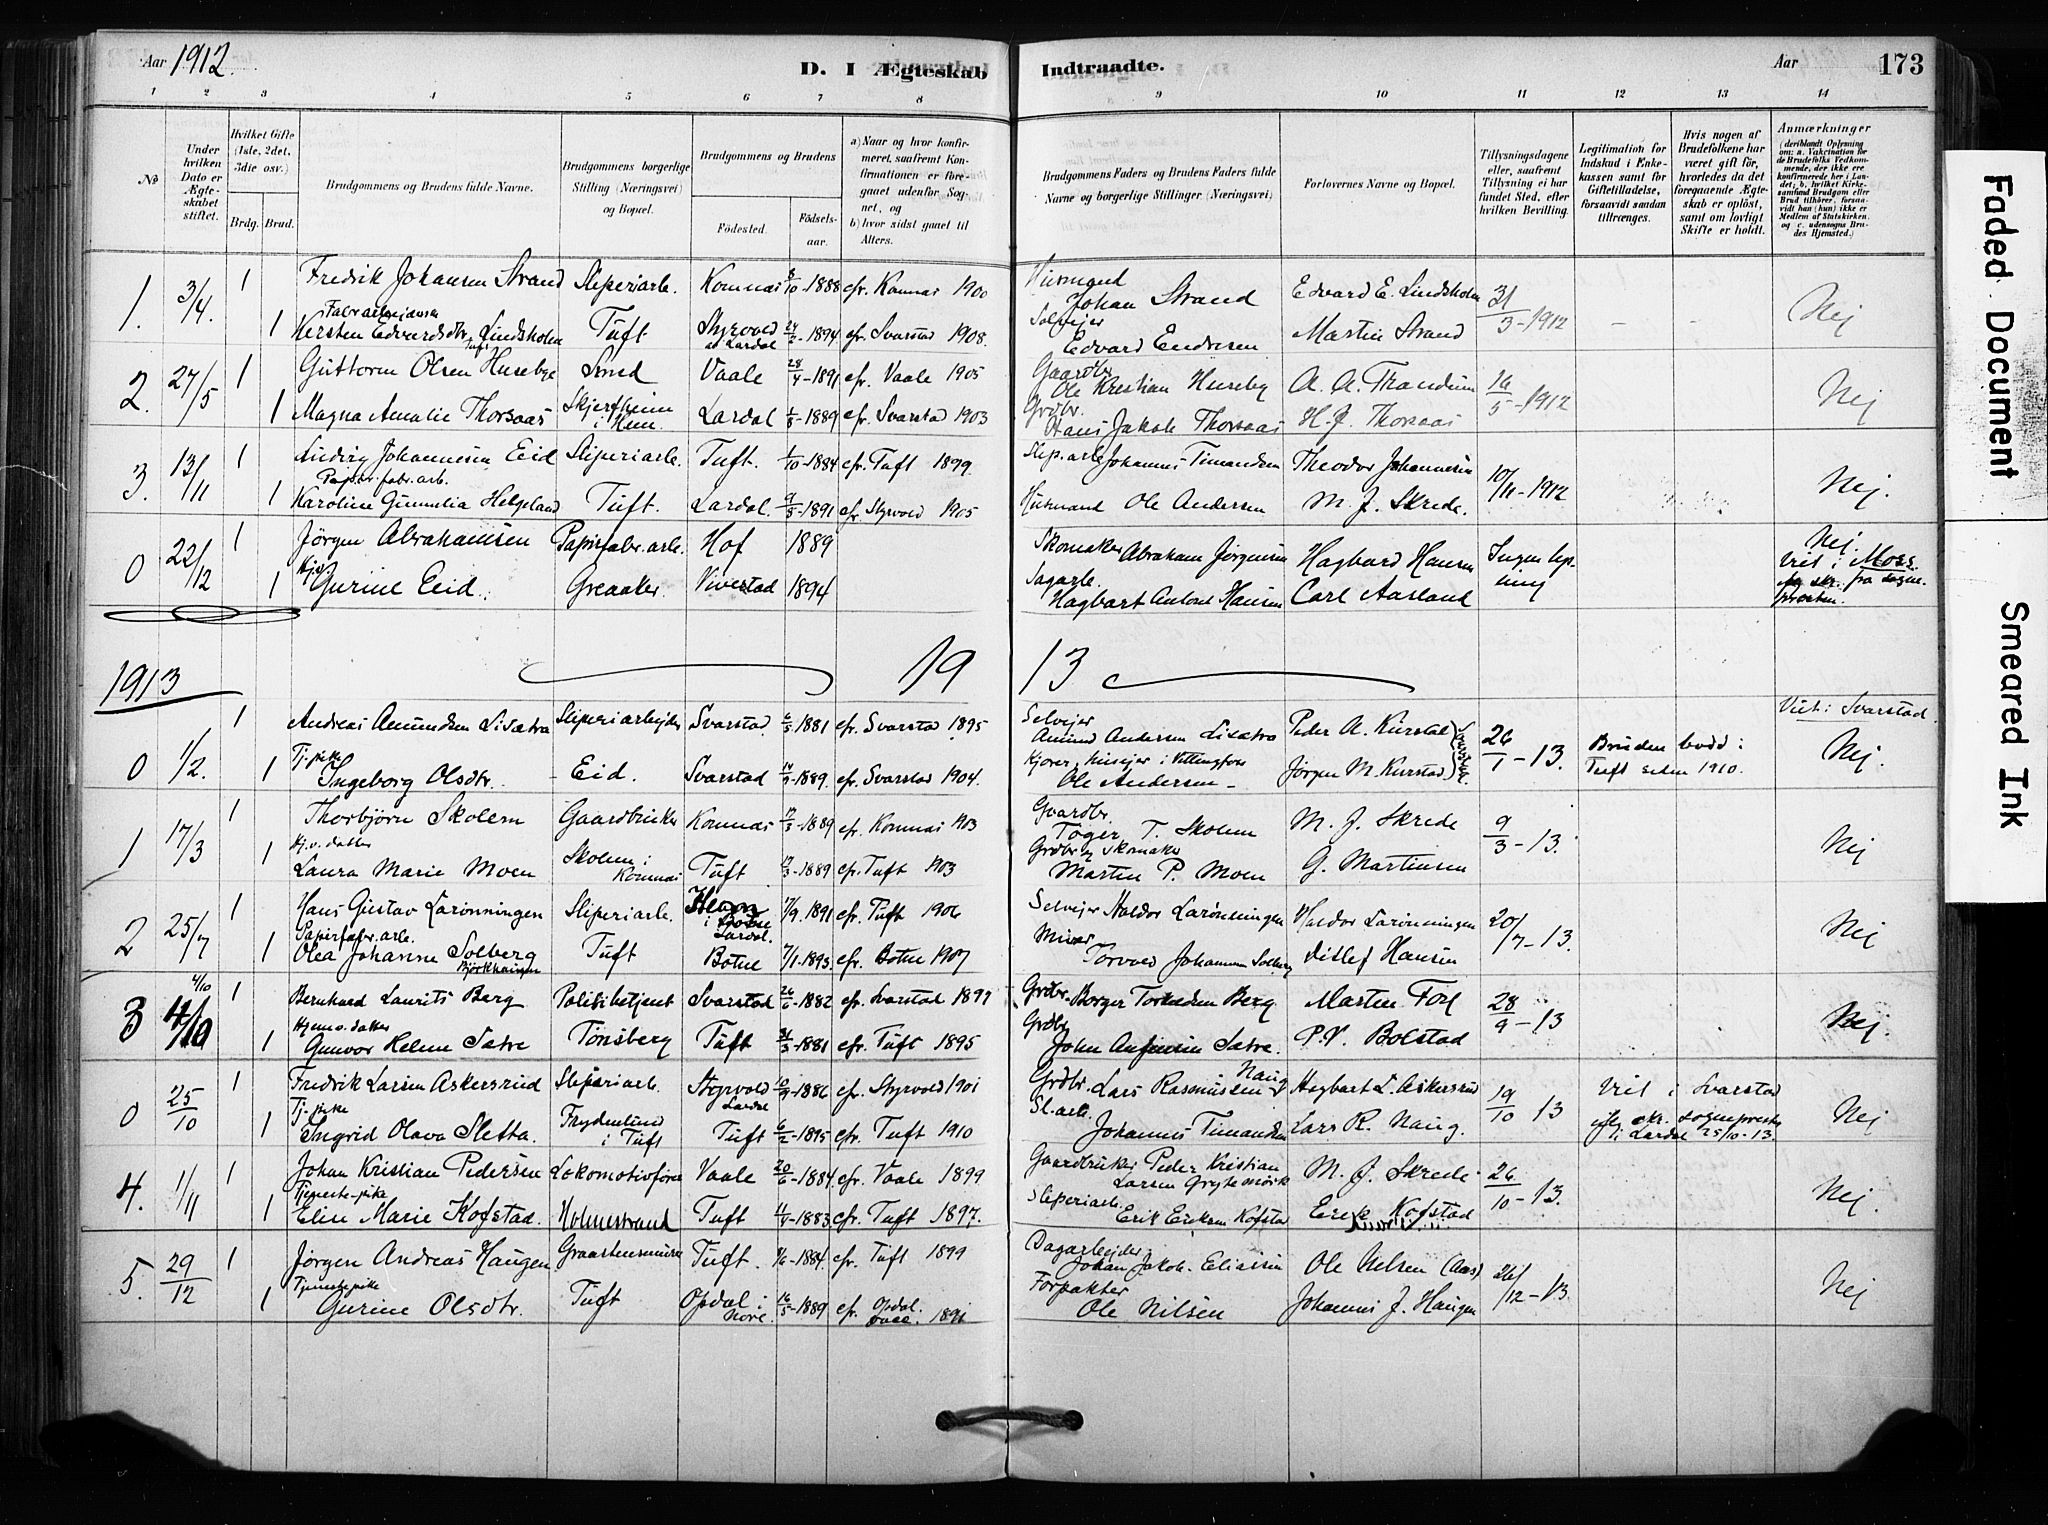 Aar 1912.
D. I Ægteskab Indtraadte.
Aar 173
1 2 3 4 5 6 7 8 9 10 11 12 13 14
No
Under hvilken Dato er Ægteskabet stiftet.
Hvilket Gifte (1ste, 2det, 3die osv.)
Brdg. Brud.
Brudgommens og Brudens fulde Navne.
Brudgommens borgerlige Stilling (Næringsvei) og Bopæl.
Brudgommens og Brudens
Fødested. Fødselsaar.
a) Naar og hvor konfirmeret, saafremt Konfirmationen er foregaaet udenfor Sognet, og
b) hvor sidst gaaet til Alters.
Brudgommens Faders og Brudens Faders fulde Navne og borgerlige Stillinger (Næringsvei)
Forlovernes Navne og Bopæl.
Tillysningsdagene eller, saafremt Tillysning ei har fundet Sted, efter hvilken Bevilling.
Legitimation for Indskud i Enkekassen samt for Giftetilladelse, forsaavidt saadan tiltrænges.
Hvis nogen af Brudefolkene har været gift før, hvorledes da det foregaaende Ægteskab er opløst, samt om lovligt Skifte er holdt.
Anmærkninger (deriblandt Oplysning om: a. Vakcination for de Brudefolks Vedkommende, der ikke ere konfirmerede her i Landet; b. hvilket Kirkesamfund Brudgom eller Brud tilhører, forsaavidt han (hun) ikke er Medlem af Statskirken, og c. udensogns Brudes Hjemsted.)
1. 3/4. 1 Fredrik Johansen Strand Sliperiarb. Komnæs 8/10-1888 cfr. Komnæs 1900 Husmand Johan Strand Edvard E. Lindsholm 31/3-1912 - - Nej
Fabrarbejderske
1 Kersten Edvardsdtr. Lindsholm Tuft Styrvold Lardal 24/2-1894 cfr. Svarstad 1908. Selvejer Edvard Endresen Martin Strand
2. 27/5 1 Guttorm Olsen Huseby Smed Vaale 28/4-1891 cfr. Vaale 1905 Gaardbr. Ole Kristian Huseby A. A. Trandum 16/5-1912 Nej
1 Magna Amalie Thorsaas Skjerfheim i Hem Lardal 1889 cfr. Svarstad 1903 Grdbr. Hans Jakob Thorsaas H. J. Thorsaas
3. 13/11 1 Ludvig Johannesen Eid Sliperiarb. Tuft. 1/10-1884 cfr. Tuft 1899. Slip.arb Johannes Timandsen Theodor Johannesen 10/11-1912 Nej.
Papir.fabr.arb.
1 Karoline Gunnelia Helgeland Tuft. Lardal. 9/5-1891 cfr. Styrvold 1905 Husmand Ole Andersen M. J. Skrede.
0 22/12 1 Jørgen Abrahamsen Papirfabr.arb. Hof 1889 Skomaker Abraham Jørgensen Hagbard Hansen Ingen lysning Nej.
1 Gurine Eid. Greaaker Vivestad 1894 Sagarb. Hagbart Antone Hansen Carl Aasland Viet i Moss. fra sognepresten.
1913 19 13
0 1/2. 1 Andreas Amundsen Lisætra Sliperiarbejder Svarstad 6/5-1881 cfr. Svarstad 1895 Selvejer Amund Andersen Lisætra Peder A. Kirstad 26/1-13. Bruden bodd i Tuft siden 1910. Viet i Svarstad.
Tj.pike
1 Ingeborg Olsdtr. Eid. Svarstad 1889. cfr. Svarstad 1904. Kjører, husejer i Vittingfoss Ole Andersen Jørgen M. Kirstad Nej.
1 17/3 1 Thorbjörn Skolem Gaardbruker Komnæs 17/3-1889 cfr. Komnæs 1903 Gaardbr. Toger T. Skolem M. J. Skrede 9/3-13. Nej
Hj.v. datter
1 Laura Marie Moen Skolem i Komnæs Tuft 1889 cfr. Tuft 1903 Grdbr og skomaker Martin P. Moen G. Martinsen
2 25/7 1 Hans Gustav Larønningen Sliperiarb. i Lardal. 7/9.1891 cfr. Tuft 1906 Selvejer Haldor Larønningen Haldor Larønningen 20/7-13. Nej
Papirfabr.arb.
1 Olea Johanne Solberg Björkhaugen Tuft Botne 7/1-1893. cfr. Botne 1907 Torvod Johannesen Solberg Ditlef Hansen
3 4/10 1 Bernhard Laurits Berg Politibetjent Svarstad 26/6-1882 cfr. Svarstad 1897 Grdbr. Borger Torkildsen Berg Martin Fos 28/9-13 Nej.
Hjemv. datter
1 Gunvor Helene Sætre Tønsberg Tuft 31/3-1881 cfr. Tuft 1895 Grdbr John Anfinnsen Sætre. P. V. Bolstad
0 25/10 1 Fredrik Larsen Askersrud Sliperiarb. Styrvold Lardal 10/9-1886 cfr. Styrvold 1901 Grdbr. Lars Rasmussen Naug Hagbart L. Askersrud 19/10 13 Viet i Svarstad
Tj.pike
1 Ingrid Olava Sletta. Frydenlund i Tuft Tuft 6/2-1895 cfr. Tuft 1910 Sl.arb. Johannes Timandsen Lars R. Naug. iflg. skr. sogneprest i Lardal 25/10-13. Nej
4. 1/11 1 Johan Kristian Pedersen Lokomotivfører Vaale 20/6-1884. cfr. Vaale 1899 Gaardbruker Peder Kristian Larsen Grytemørk M. J. Skrede 26/10-13. Nej.
Tjeneste-pike
1 Elise Marie Kofstad. Holmestrand Tuft 1883. cfr. Tuft 1897. Sliperiarb. Erik Eriksen Kofstad Erik Kofstad
5. 29/12 1 Jørgen Andreas Haugen Graastensmurer Tuft. 1/6-1884. cfr. Tuft 1899 Dagarbejder Johan Jakob Eliassen Ole Nilsen (Aas) 26/12-13. Nej
Tjenestepike
1 Gurine Olsdtr. Tuft Opdal i Nore. 16/5-1889 cfr. Opdal. Forpakter Ole Nilsen Johannes J. Haugen
Faded Document
Smeared Ink